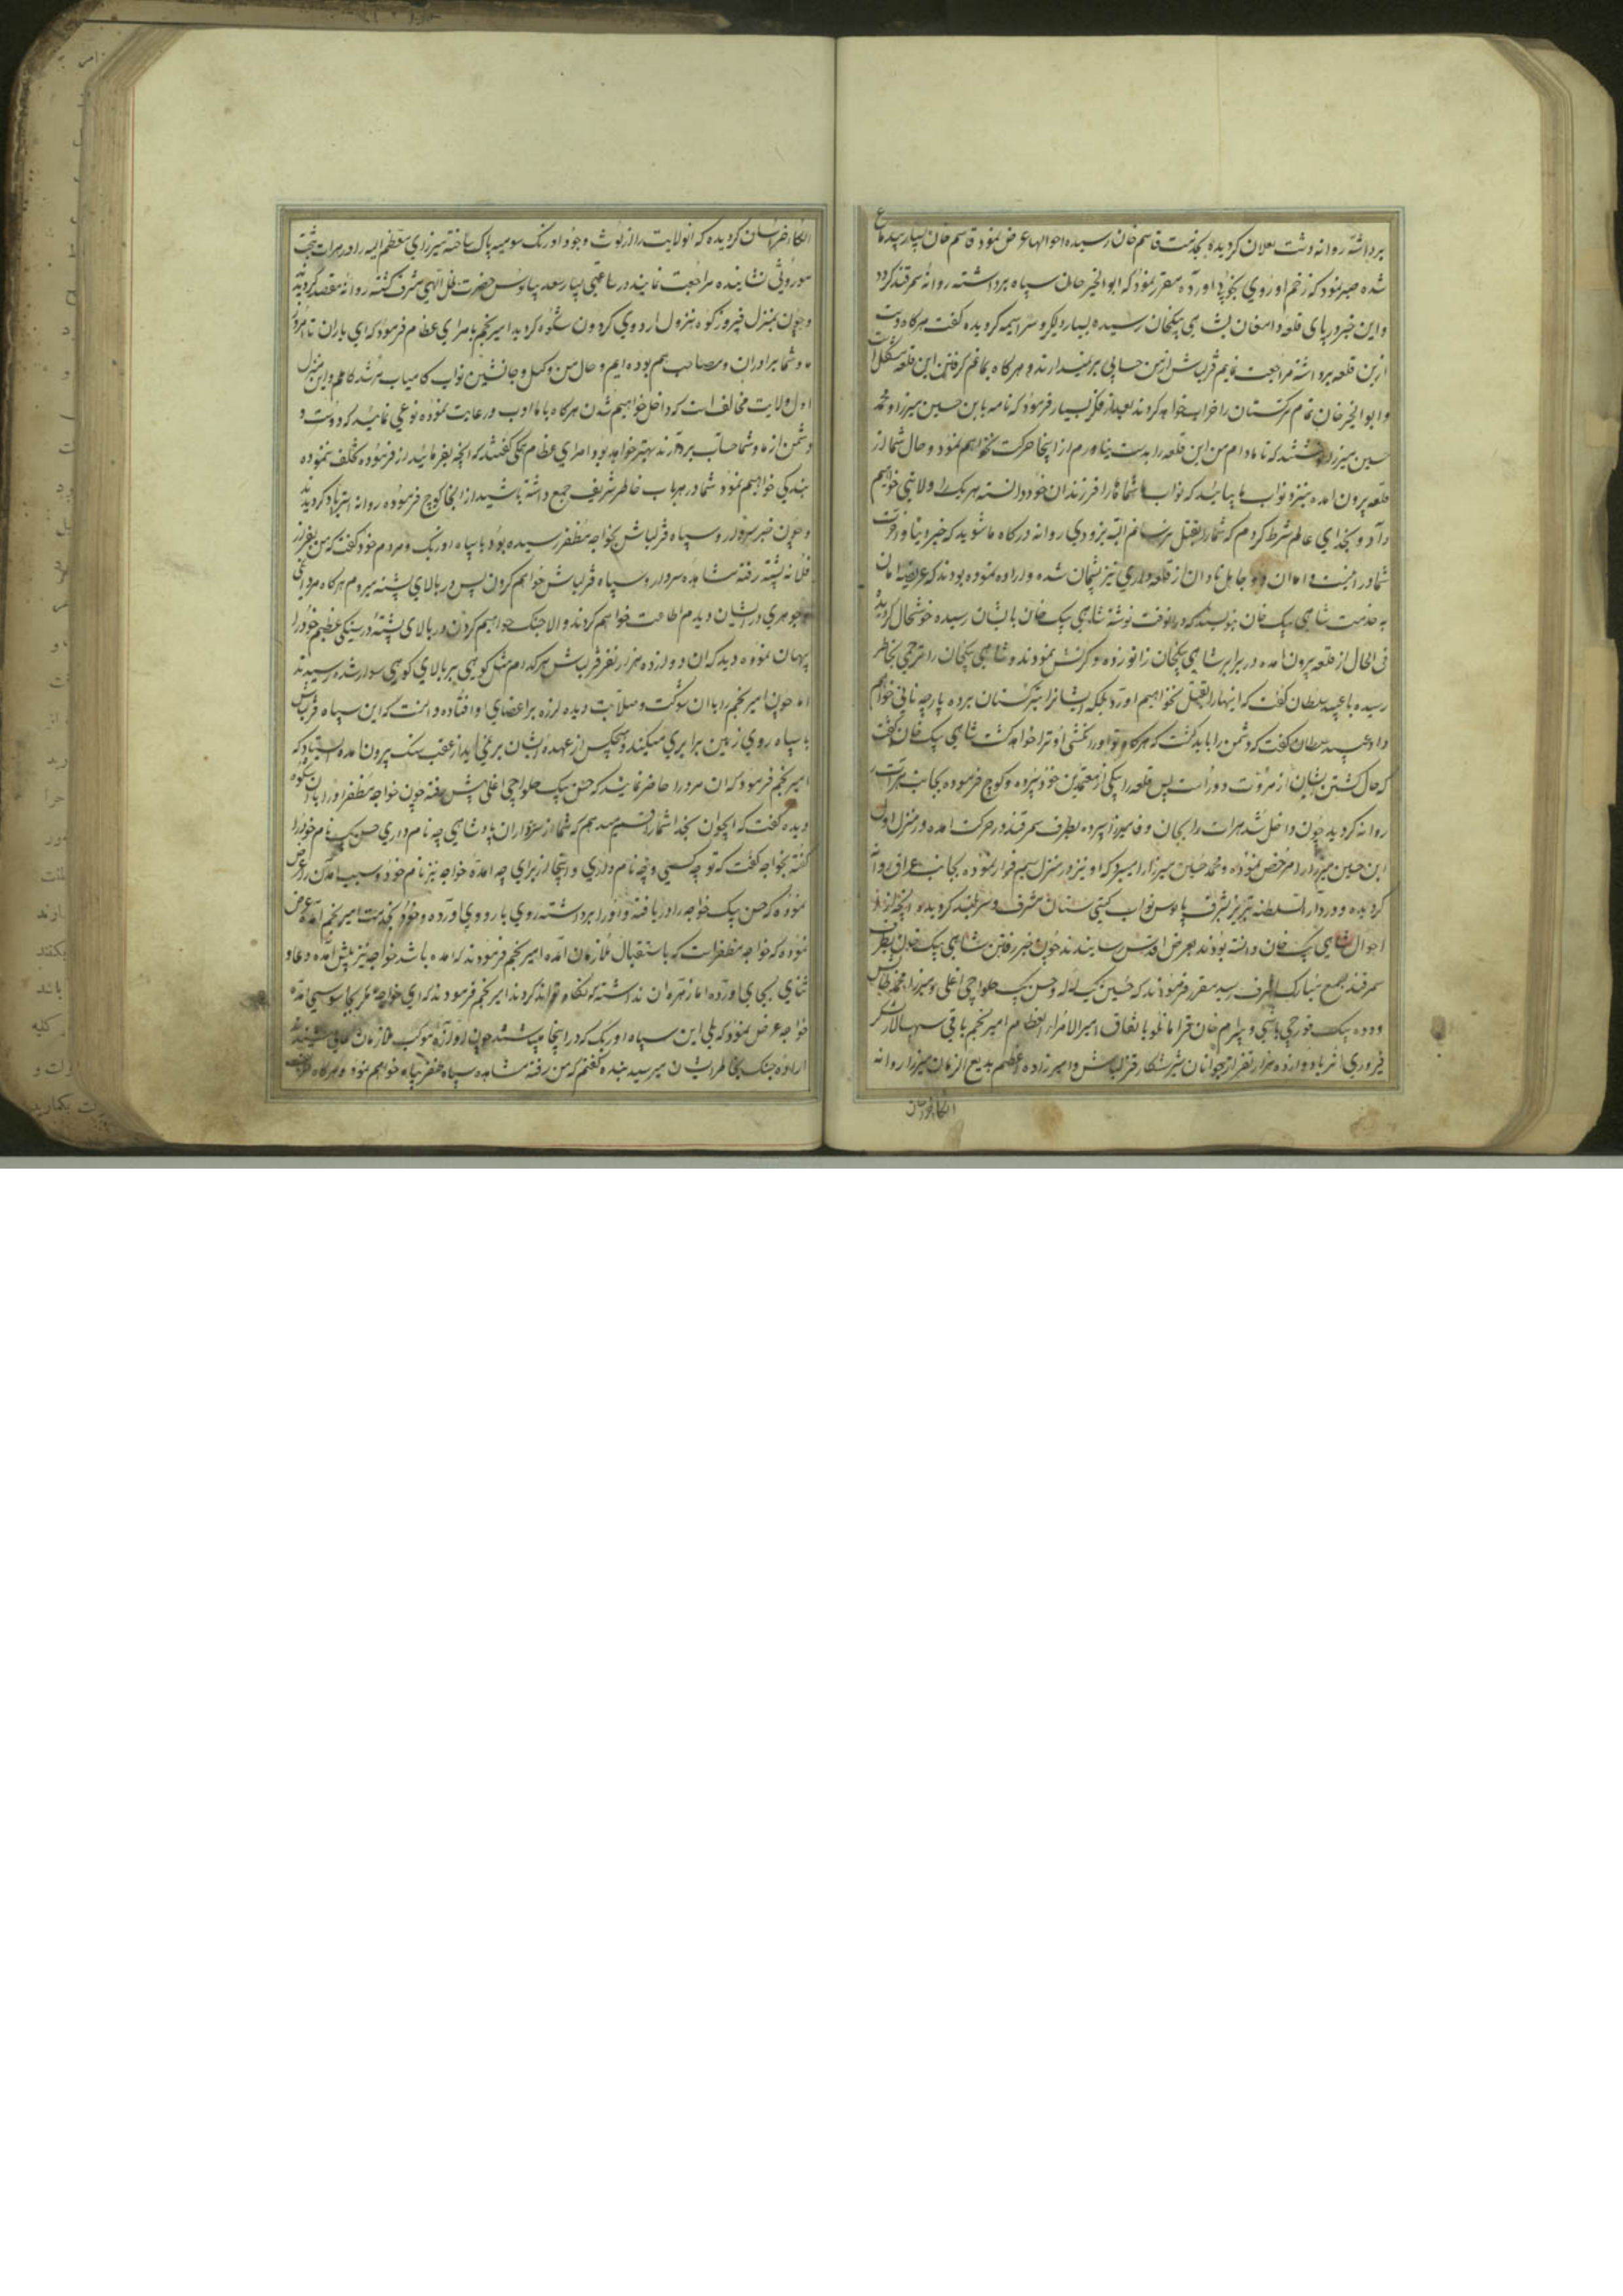 برداشته روانه دشت بعلان کردیده بخدمت قاسم خان رسیده احوالها عرض نمود قاسم خان بسیار
شده صبر نمود که زخم او روی بخوبی اورده مقرر نمود که ابوالخیر خان سپاه برداشته روانه سمرقند کردد
و این خبر در پای قلعه دامغان بشاهی بیکخان رسیده بسیار دیگر سراسیمه کردیده کفت هرکاه دست
ازین قلعه برداشته مراجعت نمایم قزلباش ازمن حسابی برنمیدارند و هرکاه بمانم گرفتن این قلعه مشکل است
و ابوالخیر خان تمام ترکستان را خراب خواهد کرد بعد از فکر بسیار فرمود که نامه بابن حسین میرزا و محمد
حسین میرزا نوشتند که تا مادام من این قلعه را بدست نیاورم از اینجا حرکت نخواهم نمود و حال شما از
قلعه بیرون امده بنزد نواب ما بیایید که نواب ما شما را فرزندان خود دانسته هر یک را ولایتی خواهیم
داد و بخدای عالم شرط کردم که شمارا بقتل نرسانم البته بزودی روانه درکاه ما شوید که خیر دنیا و اخرت
شما در اینست و اما ان دو جاهل نادان از قلعه داری نیز پشیمان شده و اراده نموده بودند که عریضه امان
به خدمت شاهی بیک خان بنویسند که در انوقت نوشته شاهی بیک خان باایشان رسیده خوشحال کردیدند
فی الحال از قلعه بیرون امده در برابر شاهی بیکخان زانو زده و کرنش نمودند و شاهی بیکخان را ترحمی بخاطر
رسیده با عبید سلطان کفت که اینهارا بقتل نخواهیم اورد بلکه ایشانرا بترکستان برده پارچه نانی خواهیم
داد عبید سلطان کفت که دشمن را باید کشت که هرکاه تو اورا نکشی او ترا خواهد کشت شاهی بیک خان کفت
که حال کشتن ایشان از مروت دور است پس قلعه را بیکی از معتمدین خود سپرده و کوچ فرموده بجانب هرات
روانه کردید چون داخل شد هرات را بجان وفا میرزا سپرده بطرف سمرقند در حرکت امده در منزل اول
ابن حسین میرزا را مرخص نموده و محمد حسین میرزا را میبرد که او نیز در منزل سیم فرار نموده بجانب عراق روانه
کردیده و در دار السلطنه تبریز بشرف پابوس نواب کیتی ستان مشرف و سربلند کردیده و انچه از
احوال شاهی بیک خان دانسته بودند بعرض اقدس رسانیدند چون خبر رفتن شاهی بیک خان بطرف
سمرقند بجمع مبارک اشرف رسید مقرر فرمودند که حسین بیک لله و حسن بیک حلواچی اغلی و میرزا محمد طالش
و دده بیک قورچی باشی و بیرام خان قرامانلو باتفاق امیرالامراء العظام امیر نجم باقی سپهسالار لشکر
فیروزی اثر با دوازده هزار نفر از جوانان شیر شکار قزلباش و امیرزاده اعظم بدیع الزمان میرزا روانه
الکاء خراسان
الکاء خراسان کردیده که انولایت را از لوث وجود اوزبک شومیه پاک ساخته میرزای معظم الیه را در هرات بتخت
موروثی نشانیده مراجعت نمایند در ساعتی بسیار سعد بپابوس حضرت ظل الهی مشرف کشته روانه مقصد کردیدند
و چون بمنزل فیروز کوه بنزول اردوی کردون شکوه کردید امیر نجم بامرای عظام فرمود که ای یاران تا امروز
ما و شما برادران و مصاحب هم بوده ایم و حال من وکیل و جانشین نواب کامیاب مرشد کاملم و این منزل
اول ولایت مخالف است که داخل خواهیم شدن هرکاه باما ادب و رعایت نموده نوعی نمایید که دوست و
دشمن از ما و شما حساب بردارند بهتر خواهد بود امرای عظام همکی کفتند که انچه بفرمایند از فرموده تخلف ننموده
بندکی خواهیم نمود شما در هر باب خاطر شریف جمع داشته باشید از انجا کوچ فرموده روانه استرآباد کردیدند
و چون خبر سردار و سپاه قزلباش بخواجه مظفر رسیده بود با سپاه اوزبک و مردم خود کفت که من بفراز
فلانه پشته رفته مشاهده سردار و سپاه قزلباش خواهم کردن پس در بالای پشته میروم هرکاه مردانکی
و جوهری در ایشان دیدم اطاعت خواهیم کردند و الا جنک خواهیم کردن در بالای پشته در سنکی عظیم خود را
پنهان نموده دید که ان دوازده هزار نفر قزلباش هرکدام مثل کوهی بر بالای کوهی سوار شده رسیدند
اما چون امیر نجم را باان شوکت و صلابت دیده لرزه بر اعضای او افتاده دانست که این سپاه قزلباش
با سپاه روی زمین برابری میکنند و هیچکس از عهده ایشان برنمی اید از عقب سنک بیرون امده ایستاد که
امیر نجم فرمود که ان مرد را حاضر نمایند که حسن بیک حلواچی اغلی پیش رفته چون خواجه مظفر اورا بان شکوه
دیده کفت که ایجوان بخدا شما را قسم میدهم که شما از سرداران پادشاهی چه نام داری حسن بیک نام خود را
کفته بخواجه کفت که تو چه کسی و چه نام داری و اینجا از برای چه امده خواجه نیز نام خود و سبب امدن را عرض
نموده که حسن بیک خواجه را دریافته و اورا برداشته روی باردوی اورده و خود بخدمت امیر نجم امده عرض
نموده که خواجه مظفر است که باستقبال ملازمان امده امیر نجم فرمودند که امده باشد خواجه نیز پیش امده دعا و
ثنای بجای اورده اما زهره ان نداشته که نکاه تواند کرد امیر نجم فرمودند که ای خواجه مکر بجاسوسی امده
خواجه عرض نمود که بلی این سپاه اوزبک که در اینجا میباشند چون اوازه موکب ملازمان عالی شنیدند
اراده جنک بخاطر ایشان میرسید بنده کفتم که من رفته مشاهده سپاه ظفر پناه خواهم نمود و هرکاه